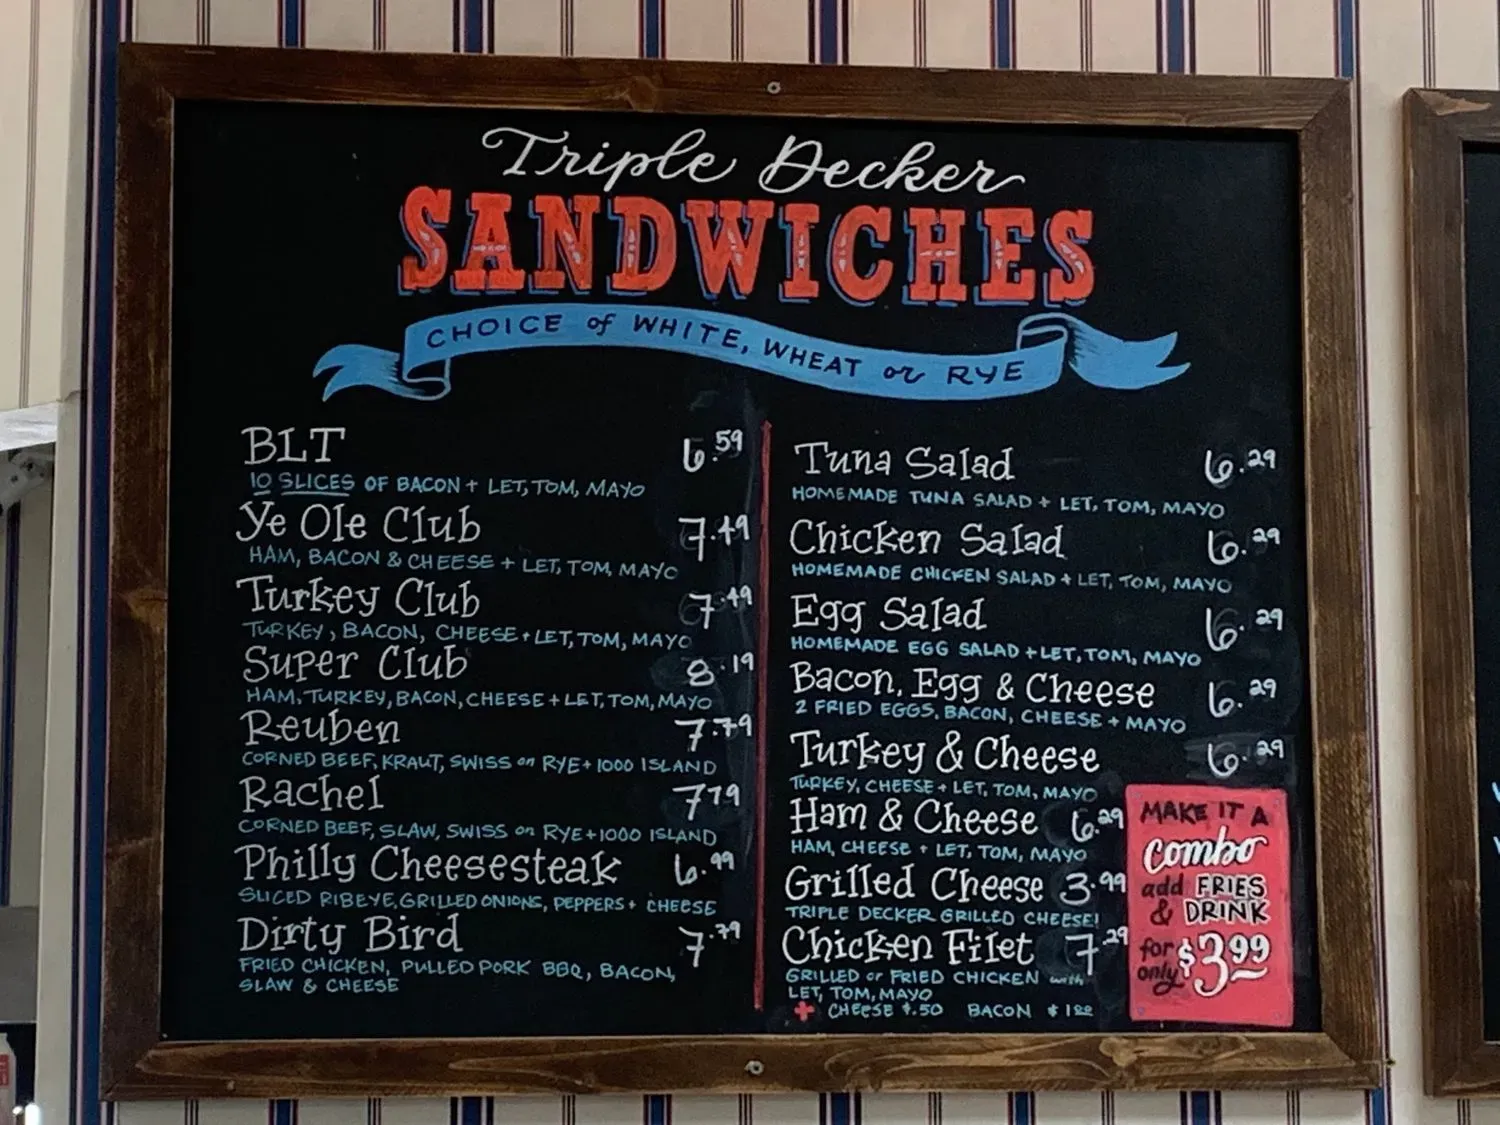 Triple Decker
SANDWICHES
CHOICE of WHITE, WHEAT or RYE
BLT 6.59
10 SLICES OF BACON + LET, TOM, MAYO
Ye Ole Club 7.49
HAM, BACON & CHEESE + LET, TOM, MAYO
Turkey Club 7.49
TURKEY, BACON, CHEESE + LET, TOM, MAYO
Super Club 8.19
HAM, TURKEY, BACON, CHEESE + LET, TOM, MAYO
Reuben 7.79
CORNED BEEF, KRAUT, SWISS on RYE + 1000 ISLAND
Rachel 7.79
CORNED BEEF, SLAW, SWISS on RYE + 1000 ISLAND
Philly Cheesesteak 6.99
SLICED RIBEYE, GRILLED ONIONS, PEPPERS + CHEESE
Dirty Bird 7.79
FRIED CHICKEN, PULLED PORK BBQ, BACON,
SLAW & CHEESE
Tuna Salad 6.29
HOMEMADE TUNA SALAD + LET, TOM, MAYO
Chicken Salad 6.29
HOMEMADE CHICKEN SALAD + LET, TOM, MAYO
Egg Salad 6.29
HOMEMADE EGG SALAD + LET, TOM, MAYO
Bacon, Egg & Cheese 6.29
2 FRIED EGGS, BACON, CHEESE + MAYO
Turkey & Cheese 6.29
TURKEY, CHEESE + LET, TOM, MAYO
Ham & Cheese 6.29
HAM, CHEESE + LET, TOM, MAYO
Grilled Cheese 3.99
TRIPLE DECKER GRILLED CHEESE!
Chicken Filet 7.29
GRILLED or FRIED CHICKEN with
LET, TOM, MAYO
+ CHEESE $.50 BACON $1.00
MAKE IT A
combo
add FRIES
& DRINK
for only $3.99